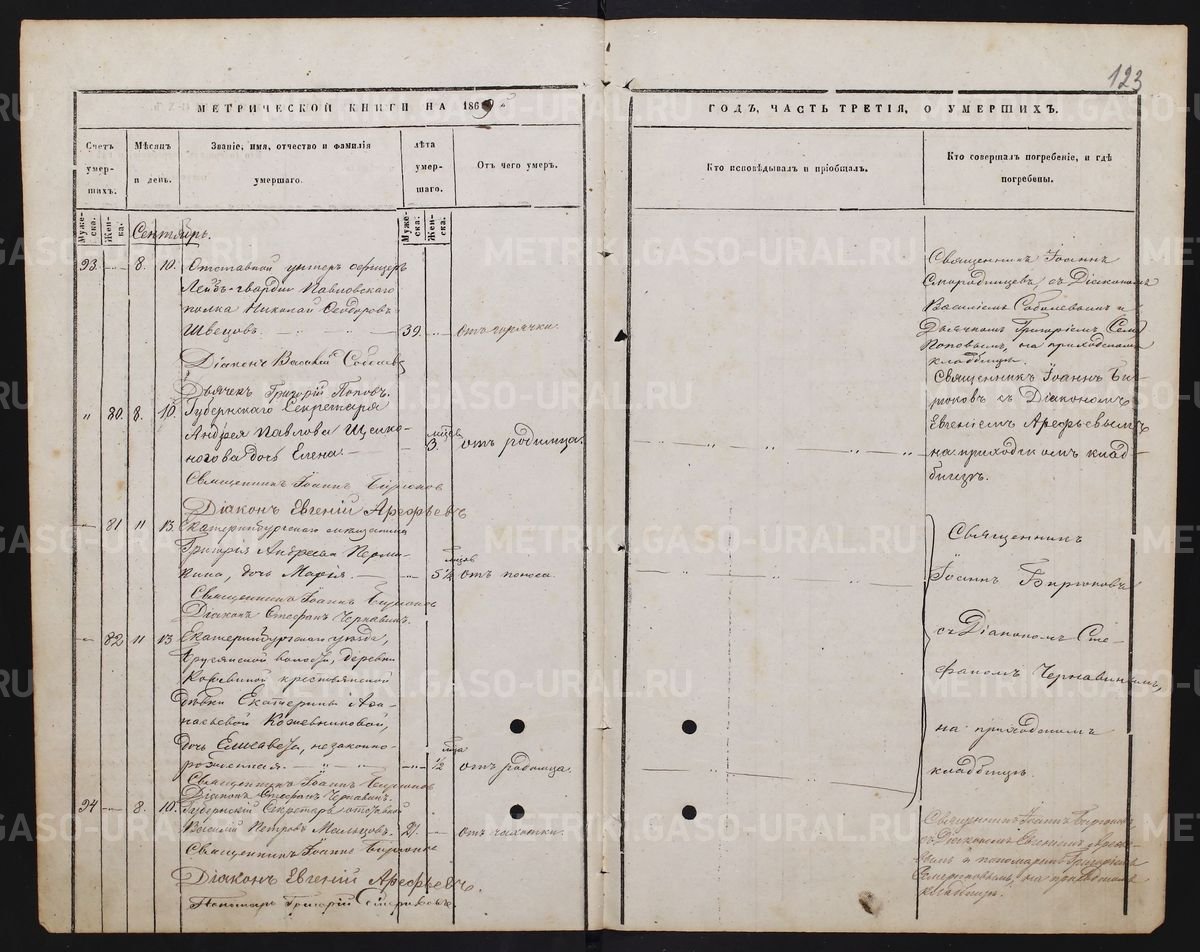 123
МЕТРИЧЕСКОЙ КНИГИ НА 1869й
ГОДЪ, ЧАСТЬ ТРЕТІЯ, О УМЕРШИХЪ.
Счетъ умерших.
Мѣсяцъ и день.
Званіе, имя, отчество и фамилія умершаго.
лѣта умершаго.
Отъ чего умеръ.
Кто исповѣдывалъ и пріобщалъ.
Кто совершалъ погребеніе, и гдѣ погребены.
Мужеска.
Женска.
Мужеска.
Женска.
Сентябрь.
93. 8. 10. Отставной унтеръ офицеръ
Лейбъ-гвардіи Павловскаго
полка Николай Ѳеодоровъ
Швецовъ. 39. отъ горячки.
Діаконъ Василій Соболевъ
Дьячекъ Григорій Поповъ.
Священникъ Іоаннъ
Смородинцевъ съ Діакономъ
Василіемъ Соболевымъ и
Дьячкомъ Григоріемъ
Поповымъ, на приходскомъ
кладбищѣ.
" 80. 8. 10. Губернскаго Секретаря
Андрея Павлова Щелко-
ногова дочь Елена. мѣсяцъ 3. отъ родимца.
Священникъ Іоаннъ Бирюковъ
Діаконъ Евгеній Арефьевъ
Священникъ Іоаннъ Би-
рюковъ съ Діакономъ
Евгеніемъ Арефьевымъ
на приходскомъ клад-
бищѣ.
81 11 13. Екатеринбургскаго мѣщанина
Григорія Андреева Перми-
кина, дочь Марія. 5½ отъ поноса.
Священникъ Іоаннъ Бирюковъ
Діаконъ Стефанъ Чернавинъ.
82 11 13 Екатеринбургскаго уѣзда,
волости, деревни
крестьянской
дѣвки Екатерины Аѳа-
насьевой Кожевниковой,
дочь Елисавета, незаконно-
рожденная. ½ отъ родимца.
Священникъ Іоаннъ Бирюковъ
Діаконъ Стефанъ Чернавинъ.
Священникъ
Іоаннъ Бирюковъ
съ Діакономъ Сте-
фаномъ Чернавинымъ,
на приходскомъ
кладбищѣ.
94 8. 10. Губернскій Секретарь отставной
Василій Петровъ Мальцовъ. отъ чахотки.
Священникъ Іоаннъ Бирюковъ
Діаконъ Евгеній Арефьевъ.
Пономарь Григорій
Священникъ Іоаннъ Бирюковъ
съ Діакономъ Евгеніемъ Арефье-
вымъ и пономаремъ Григоріемъ
на приходскомъ
кладбищѣ.
METRIK.GASO-URAL.RU